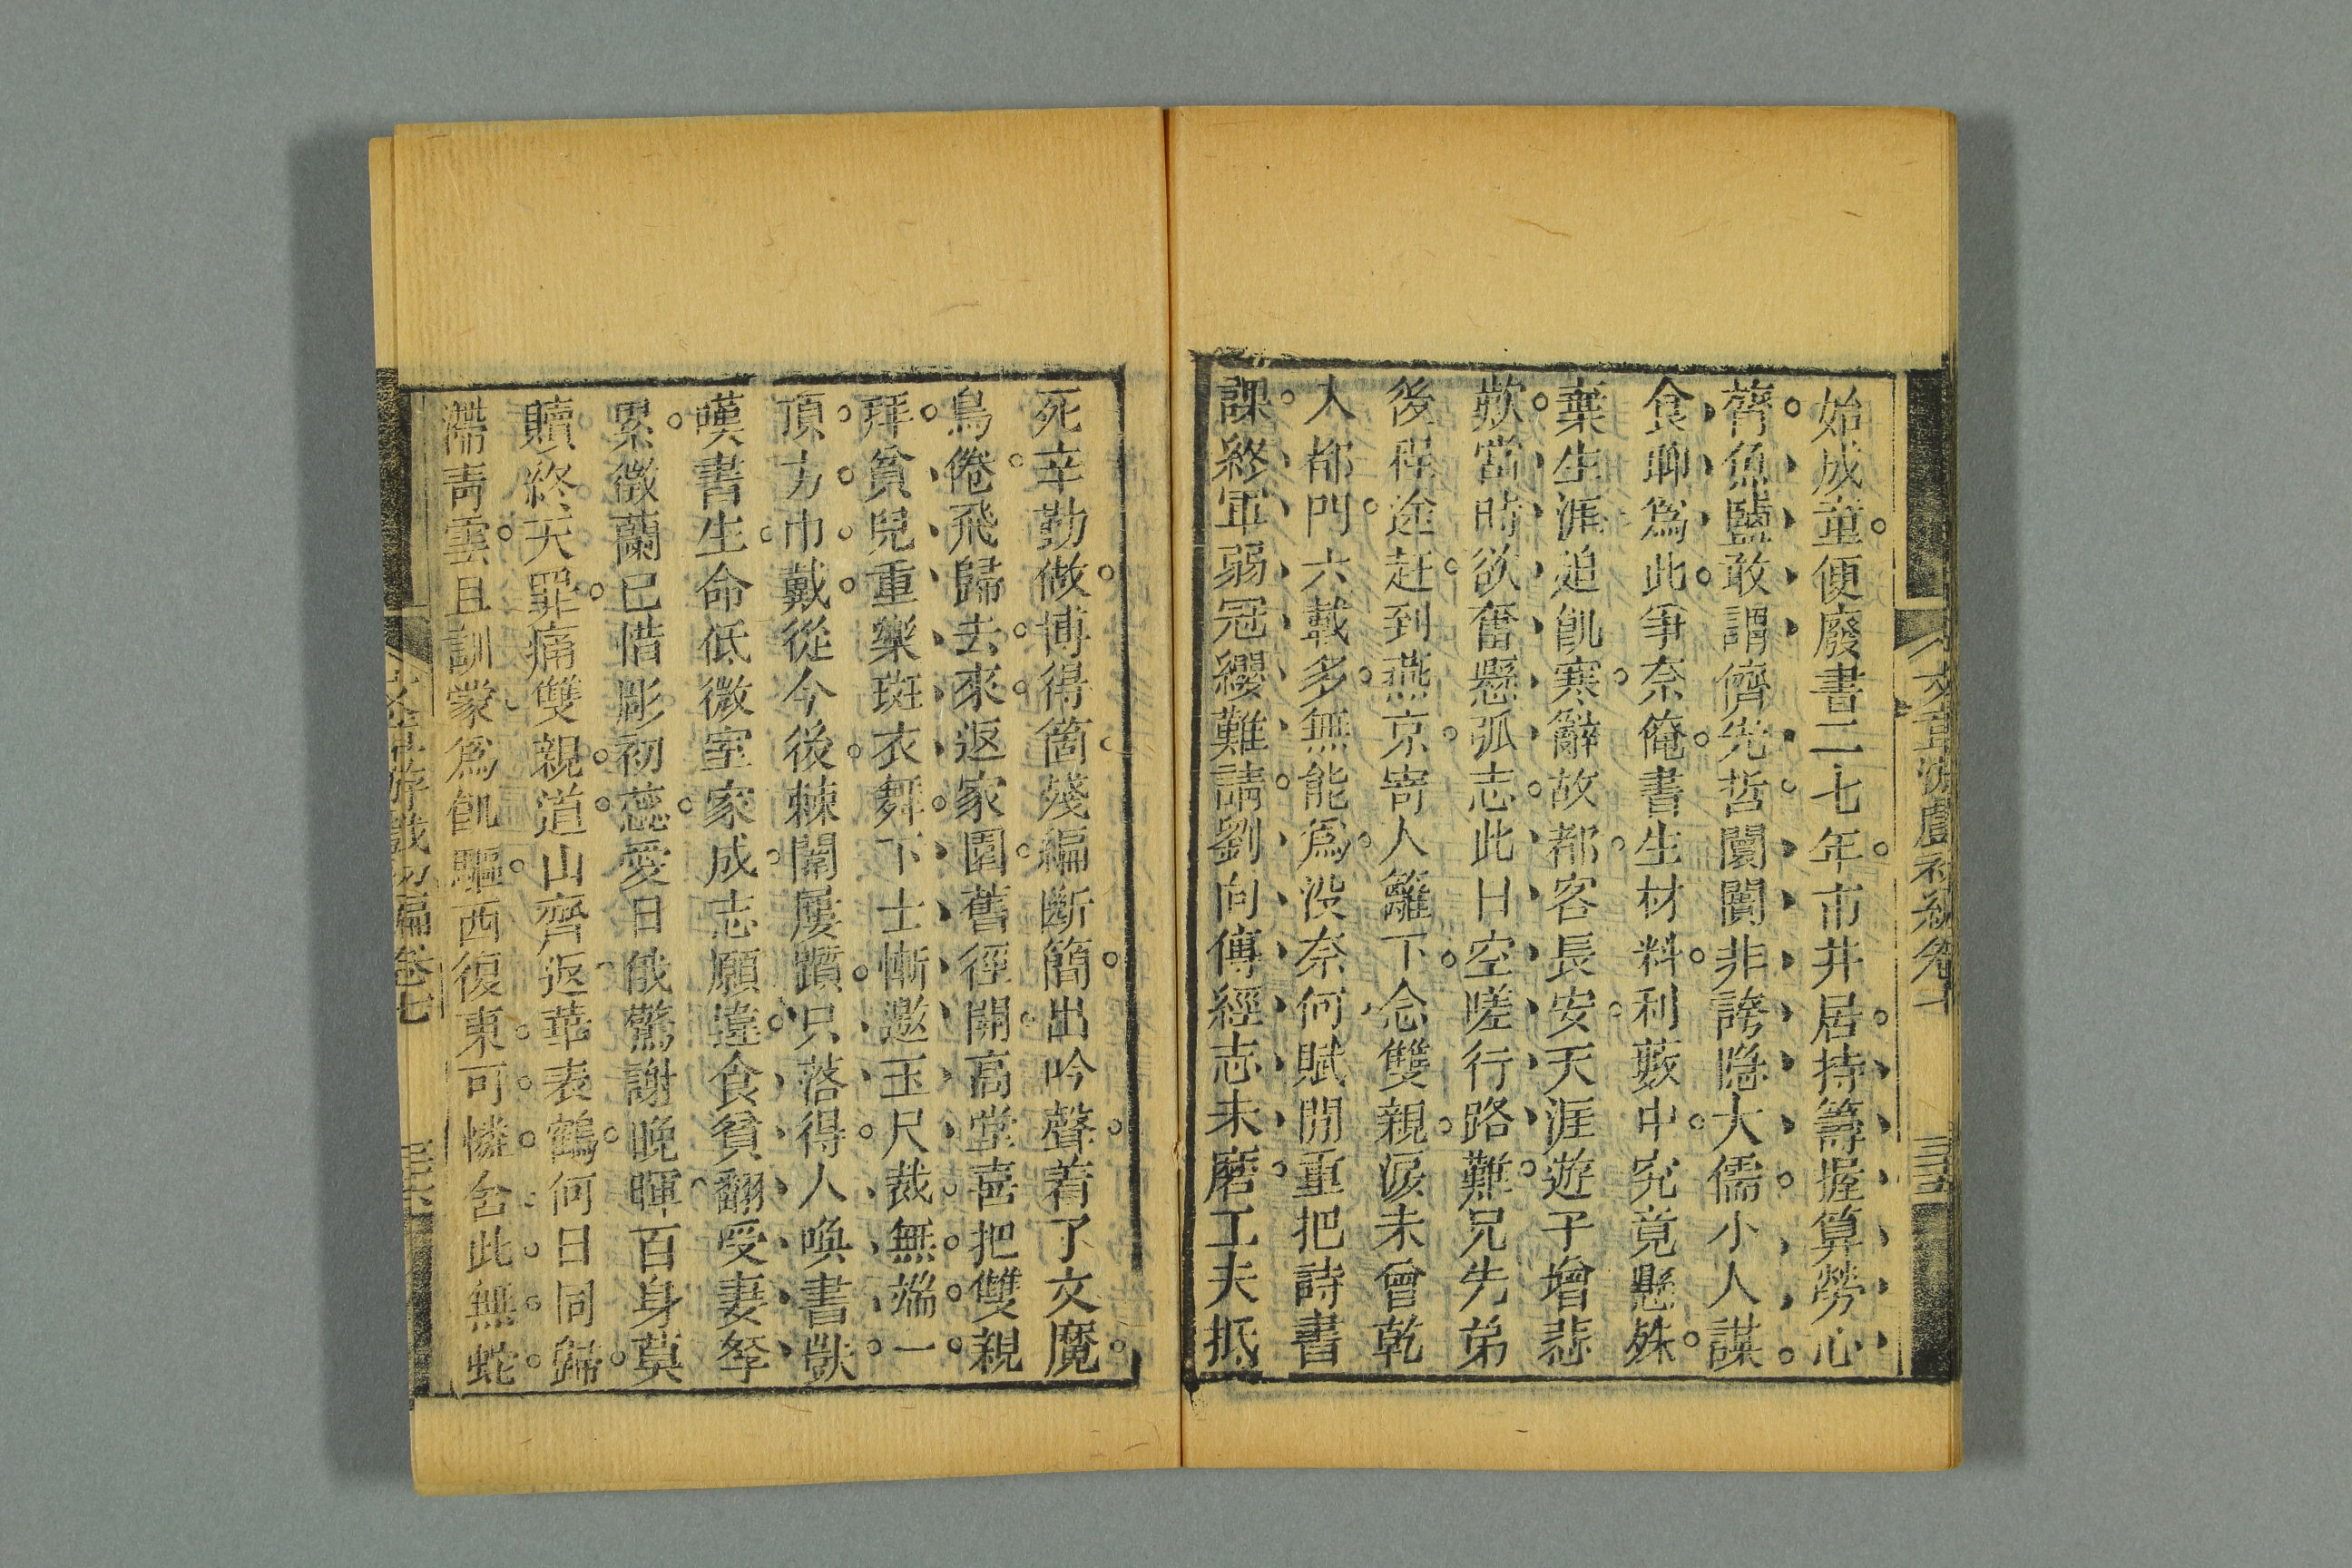 文章游戲初編卷七
始成童便廢書二七年市井居持籌握算勞心
膂魚鹽敢謂儕先哲闤闠非誇隱大儒小人謀
食聊爲此爭奈俺書生材料利藪中究竟懸殊
棄生涯迫飢寒辭故都客長安天涯遊子增悲
歎當時欲奮懸弧志此日空嗟行路難兄先弟
後程途赶到燕京寄人籬下念雙親淚未曾乾
人都門六載多無能爲没奈何賦閒重把詩書
課終軍弱冠纓難請劉向傳經志未磨工夫抵
死辛勤做博得箇殘編斷簡出吟聲着了文魔
鳥倦飛歸去來返家園舊徑開高堂喜把雙親
拜貧兒重樂斑衣舞下士慚邀玉尺裁無端一
頂方巾戴從今後棘闈屢躓只落得人喚書獃
嘆書生命低微室家成志願違食貧翻受妻孥
累徵蘭已惜彫初蕊愛日俄驚謝晚暉百身莫
贖終天罪痛雙親道山齊返華表鶴何日同歸
滯靑雲且訓蒙爲飢驅西復東可憐舍此無蛇
文章游戲初編卷七